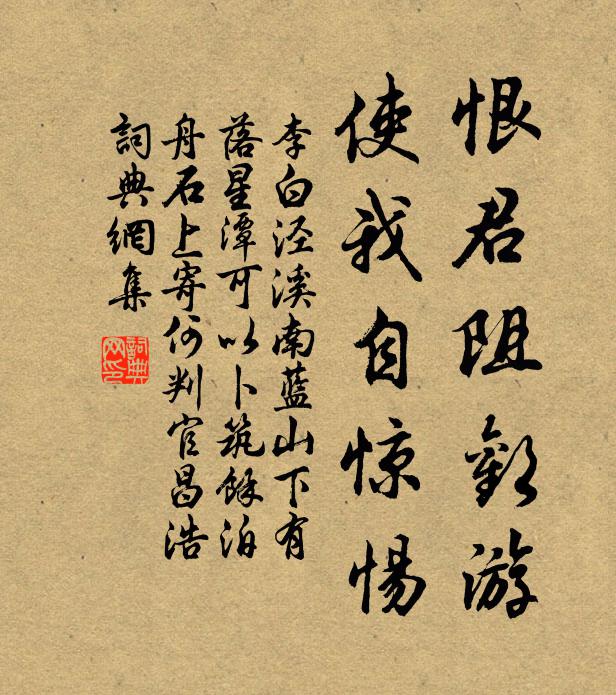 恨君阻歡游
使我自惊惕
李白泾溪南藍山下有
落星潭可以卜筑餘泊
舟石上寄何判官昌浩
詞典網集
詞典网印